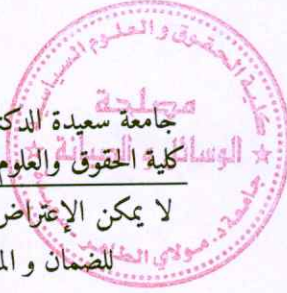 كلية الحقوق والعلوم السياسية
مصلحة
الوسائل و الصيانة
جامعة د. مولاي الطاهر
جامعة سعيدة الدكت
كلية الحقوق والعلوم
لا يمكن الإعتراض
للضمان و الم